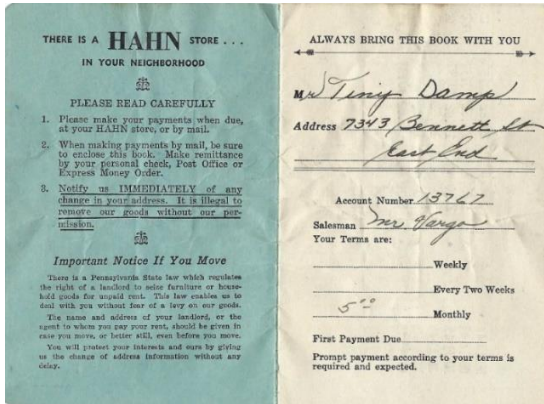 THERE IS A HAHN STORE . . .
IN YOUR NEIGHBORHOOD
PLEASE READ CAREFULLY
1. Please make your payments when due,
at your HAHN store, or by mail.
2. When making payments by mail, be sure
to enclose this book. Make remittance
by your personal check, Post Office or
Express Money Order.
3. Notify us IMMEDIATELY of any
change in your address. It is illegal to
remove our goods without our per-
mission.
Important Notice If You Move
There is a Pennsylvania State law which regulates
the right of a landlord to seize furniture or house-
hold goods for unpaid rent. This law enables us to
deal with you without fear of a levy on our goods.
The name and address of your landlord, or the
agent to whom you pay your rent, should be given in
case you move, or better still, even before you move.
You will protect your interests and ours by giving
us the change of address information without any
delay.
ALWAYS BRING THIS BOOK WITH YOU
Mr Tiny Damp
Address 7343 Bennett St
East End
Account Number 13767
Salesman Mr Vargo
Your Terms are:
Weekly
Every Two Weeks
5.00 Monthly
First Payment Due
Prompt payment according to your terms is
required and expected.